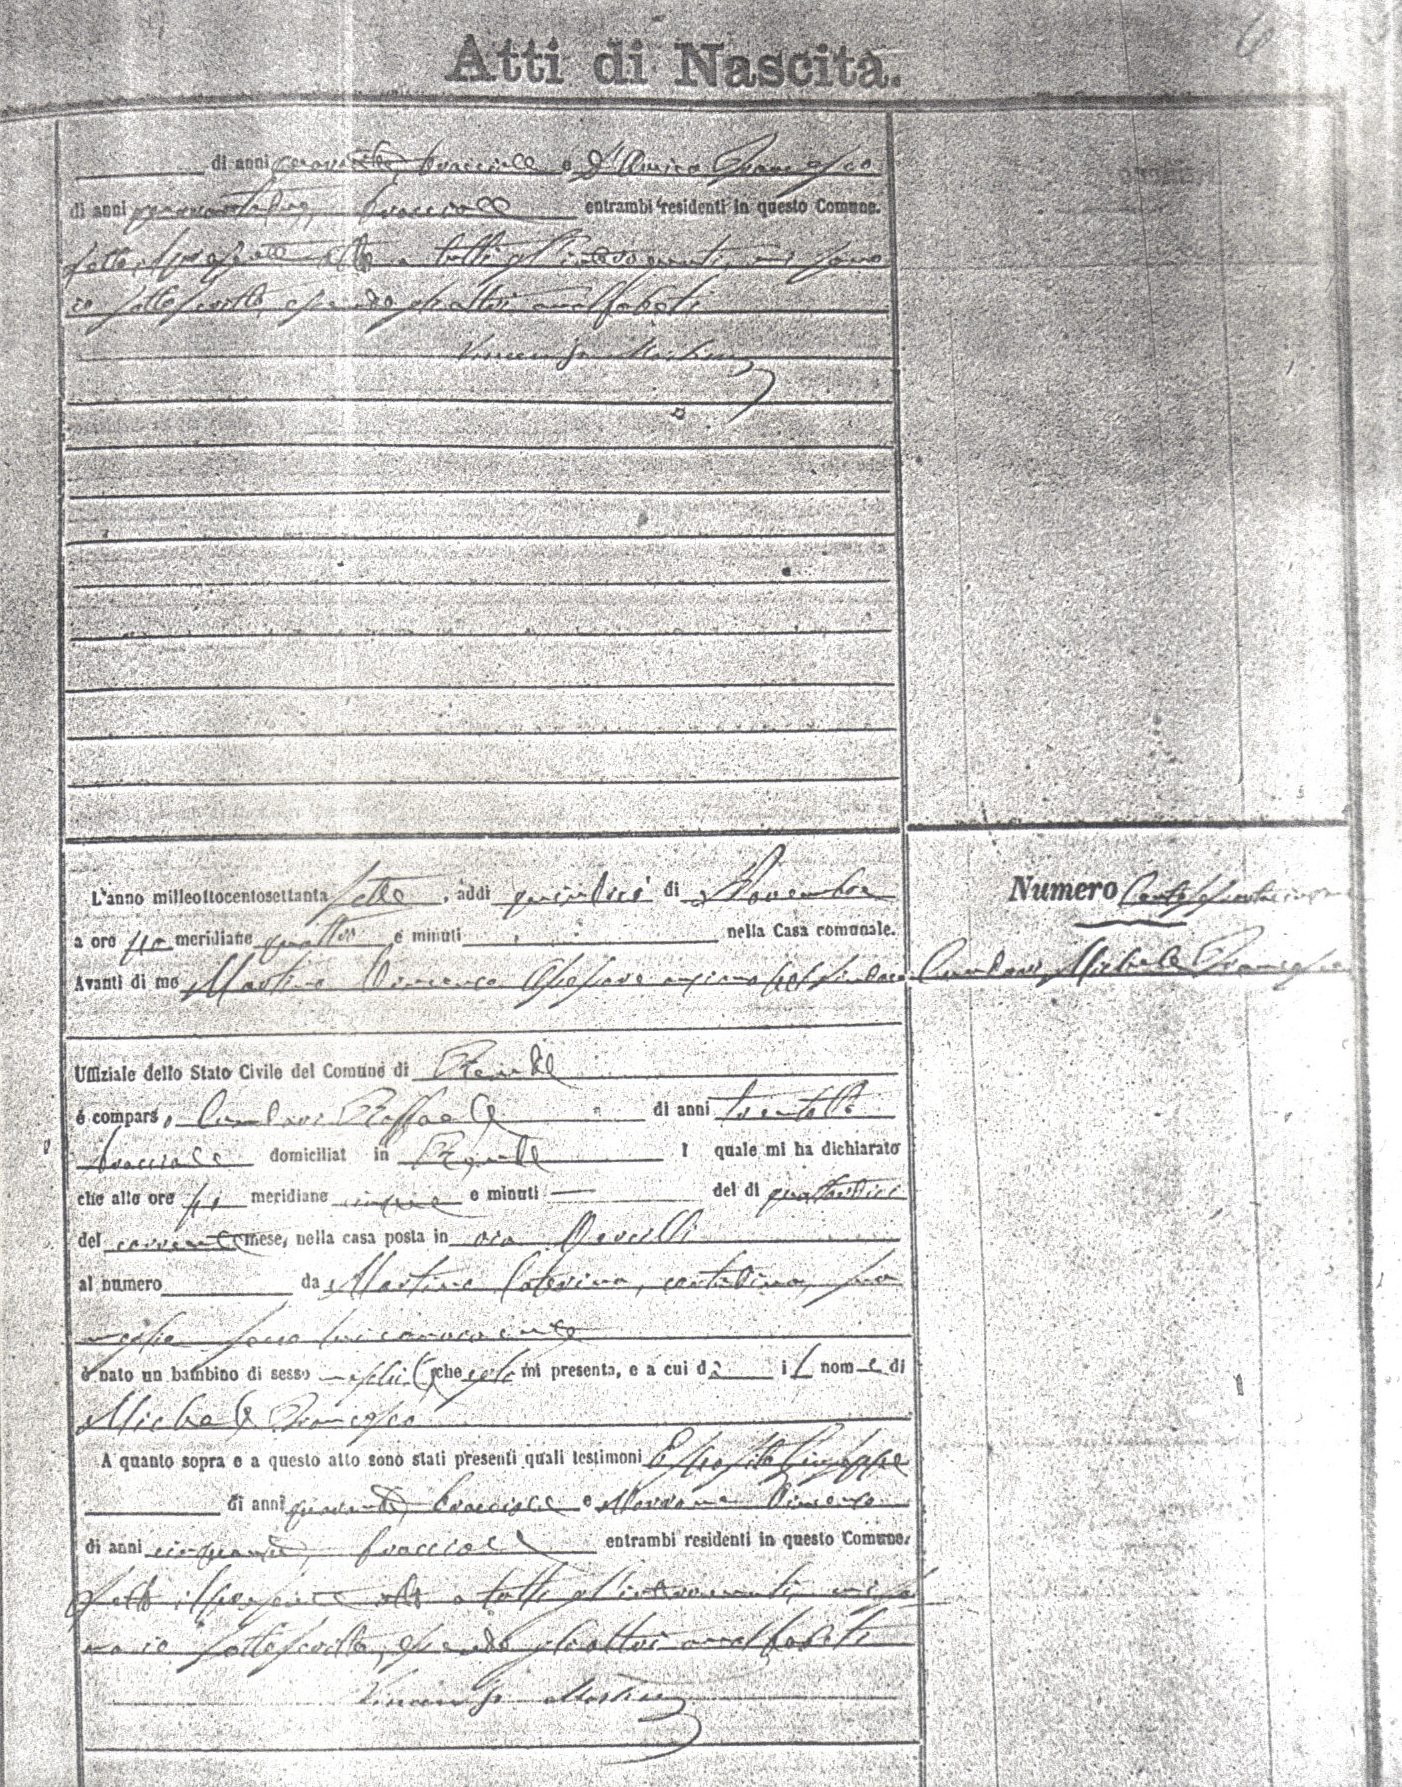 Atti di Nascita.
di anni quaranta, bracciale e D'Amico Francesco
di anni bracciale entrambi residenti in questo Comune.
Letto il presente atto a tutti gl'intervenuti, mi sono
io sottoscritto, essendo gli altri analfabeti
Vincenzo Martino
L'anno milleottocentosettanta sette, addì quindici di Novembre
a ore pm meridiane quattro e minuti nella Casa comunale.
Avanti di me Martino Vincenzo Assessore anziano pel Sindaco
Numero Centosessantacinque
Michele Francesco
Uffiziale dello Stato Civile del Comune di Rende
è comparso Raffaele di anni
bracciale domiciliat in Rende l quale mi ha dichiarato
che alle ore meridiane cinque e minuti — del dì quattordici
del corrente mese, nella casa posta in via
al numero da Martino Caterina, contadina, sua
moglie seco lui convivente
è nato un bambino di sesso maschile che egli mi presenta, e a cui dà il nome di
Michele Francesco
A quanto sopra e a questo atto sono stati presenti quali testimoni Esposito Giuseppe
di anni quaranta, bracciale e Vincenzo
di anni cinquanta, bracciale entrambi residenti in questo Comune.
Letto il presente atto a tutti gl'intervenuti, mi so
no io sottoscritto, essendo gli altri analfabeti
Vincenzo Martino